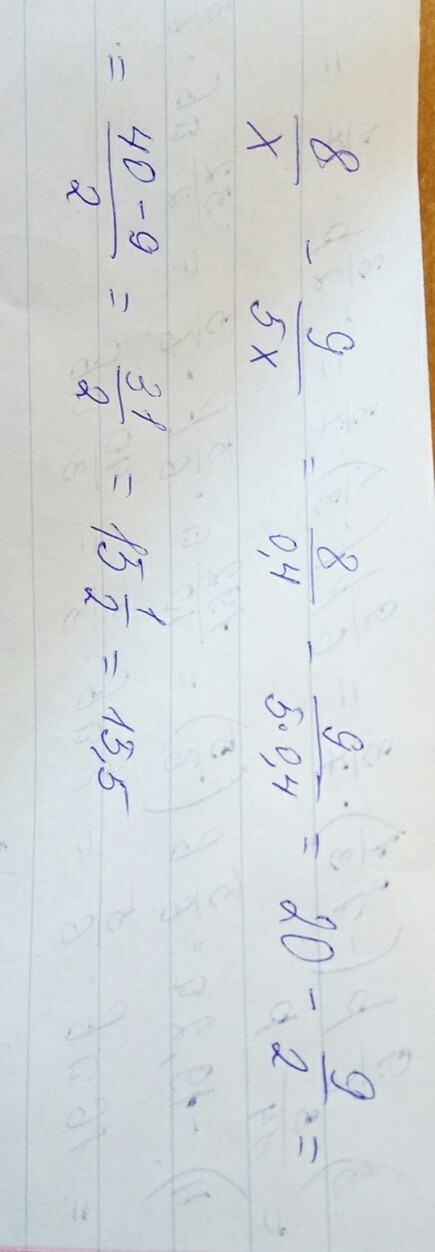 8/x - 9/5x = 8/0,4 - 9/5·0,4 = 20 - 9/2 =
= 40-9/2 = 31/2 = 15 1/2 = 15,5